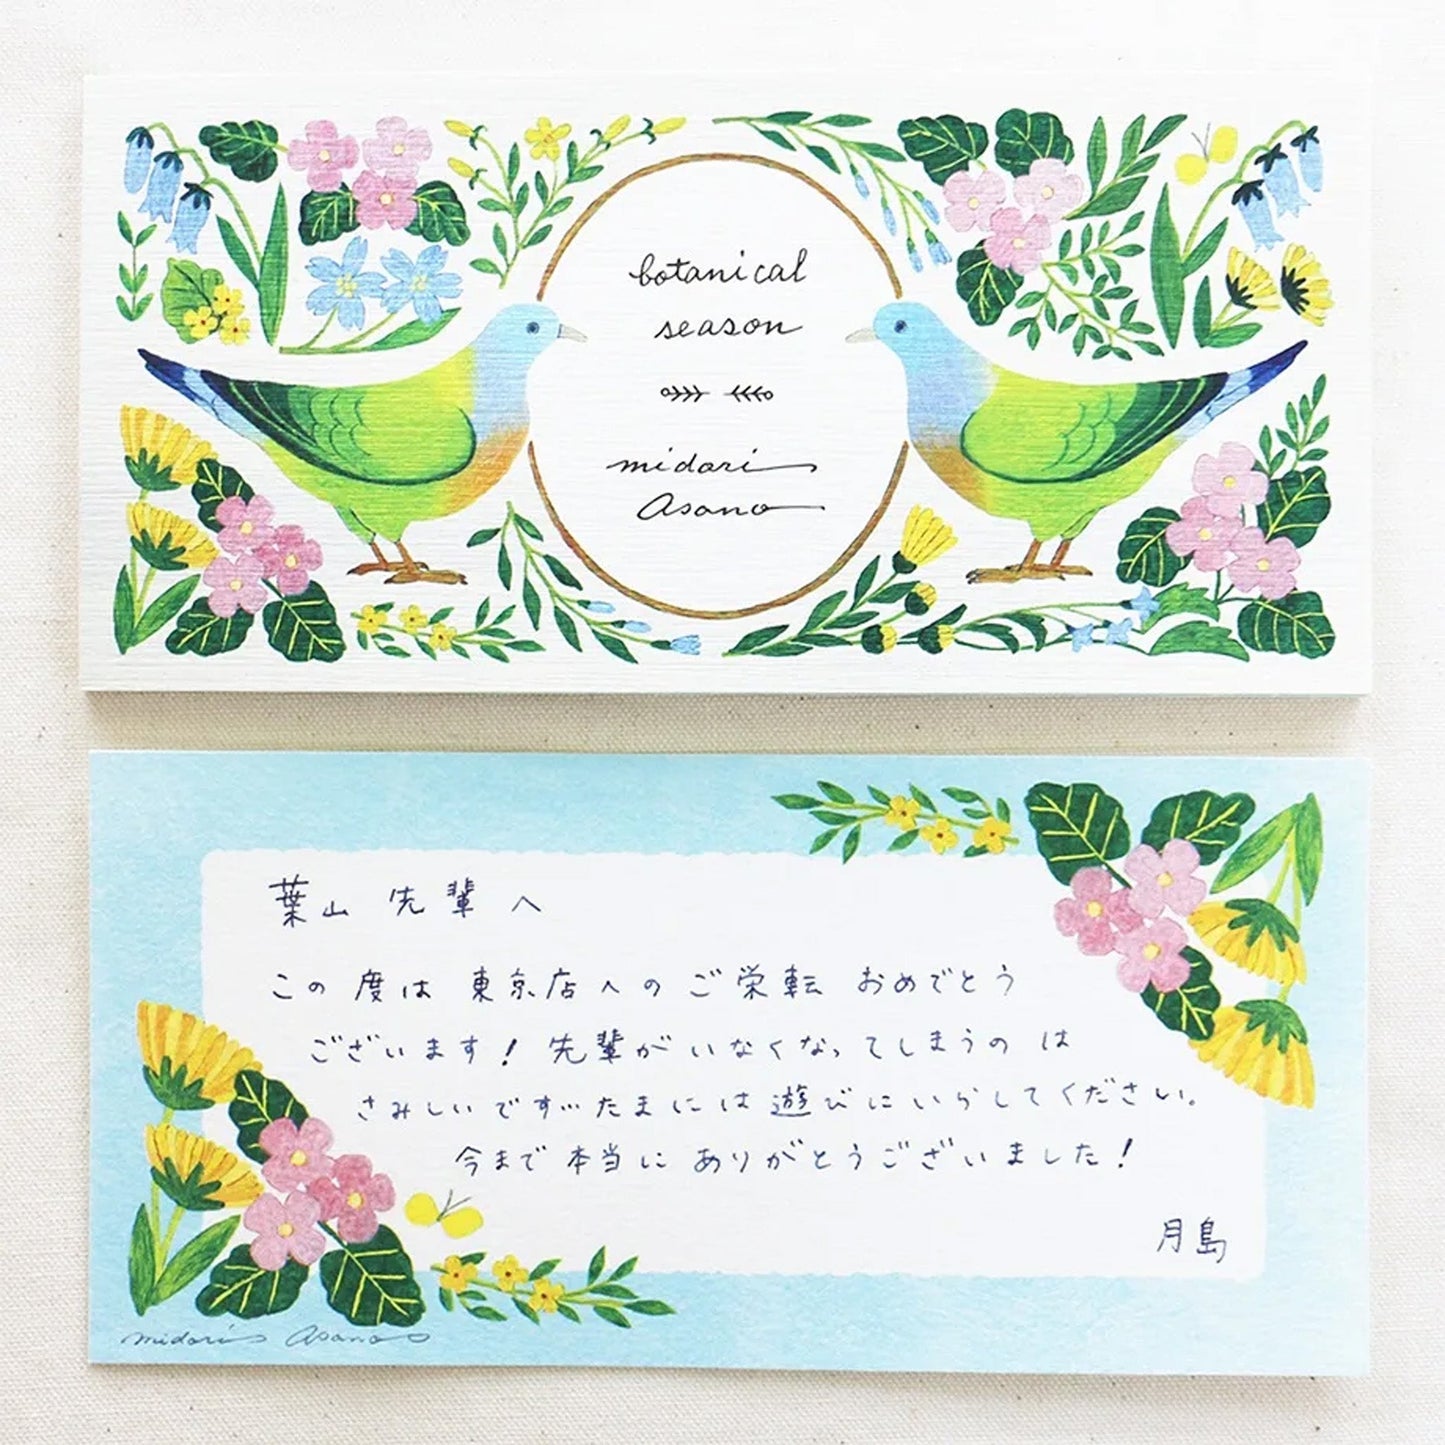 botanical
season
midori
Asano
葉山 先輩へ
この度は 東京店へのご栄転 おめでとう
ございます! 先輩がいなくなってしまうのは
さみしいです… たまには遊びにいらしてください。
今まで本当にありがとうございました!
月島
midori Asano